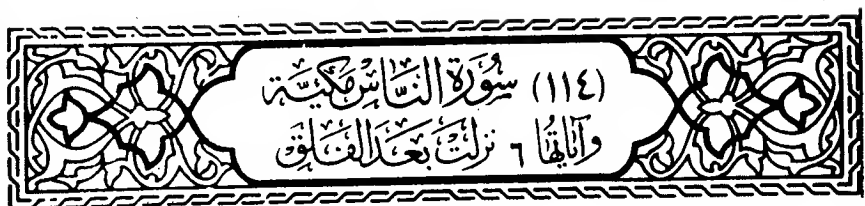 (١١٤) سُورَة النَّاسِ مَكيَّة
وَآيَاتُهَا ٦ نَزَلَتْ بَعْدَ الفَلَقِ